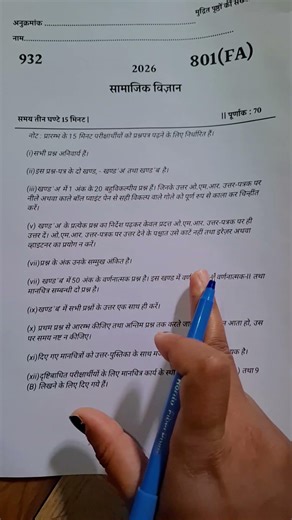 मुद्रित पृष्ठों की
अनुक्रमांक
नाम
932
801(FA)
2026
सामाजिक विज्ञान
समय तीन घण्टे 15 मिनट|
|| पूर्णांक : 70
नोट : प्रारम्भ के 15 मिनट परीक्षार्थीयों को प्रश्नपत्र पढ़ने के लिए निर्धारित है।
(i)सभी प्रश्न अनिवार्य है।
(ii)इस प्रश्न-पत्र के दो खण्ड,- खण्ड 'अ' तथा खण्ड 'ब' है।
(iii)खण्ड 'अ' में 1 अंक के 20 बहुविकल्पीय प्रश्न है। जिनके उत्तर ओ.एम.आर. उत्तर-पत्रक पर
नीले अथवा काले बॉल प्वाइंट पेन से सही विकल्प वाले गोले को पूर्ण रुप से काला कर चिन्हींत
करें।
(v) खण्ड 'अ' के प्रत्येक प्रश्न का निर्देश पढ़कर केवल प्रदत्त ओ.एम.आर. उत्तर-पत्रक पर ही
उत्तर दें। ओ.एम.आर. उत्तर-पत्रक पर उत्तर देने के पश्चात उसे काटें नहीं तथा इरेज़र अथवा
व्हाइटनर का प्रयोग न करें।
(vii)प्रश्न के अंक उनके सम्मुख अंकित है।
(viii)खण्ड 'ब' में 50 अंक के वर्णनात्मक प्रश्न है। इस खण्ड में वर्णनात्मक-II तथा
मानचित्र सम्बन्धी दो प्रश्न है।
(ix)खण्ड 'ब' में सभी प्रश्नों के उत्तर एक साथ ही करें।
(x) प्रथम प्रश्न से आरम्भ कीजिए तथा अन्तिम प्रश्न तक करते आता हो, उस
पर समय नष्ट न कीजिए।
(xi)दिए गए मानचित्रों को उत्तर-पुस्तिका के साथ है।
(xii)दृष्टिबाधित परीक्षार्थीयों के लिए मानचित्र कार्य के तथा 9
(B) लिखने के लिए दिए गये हैं।